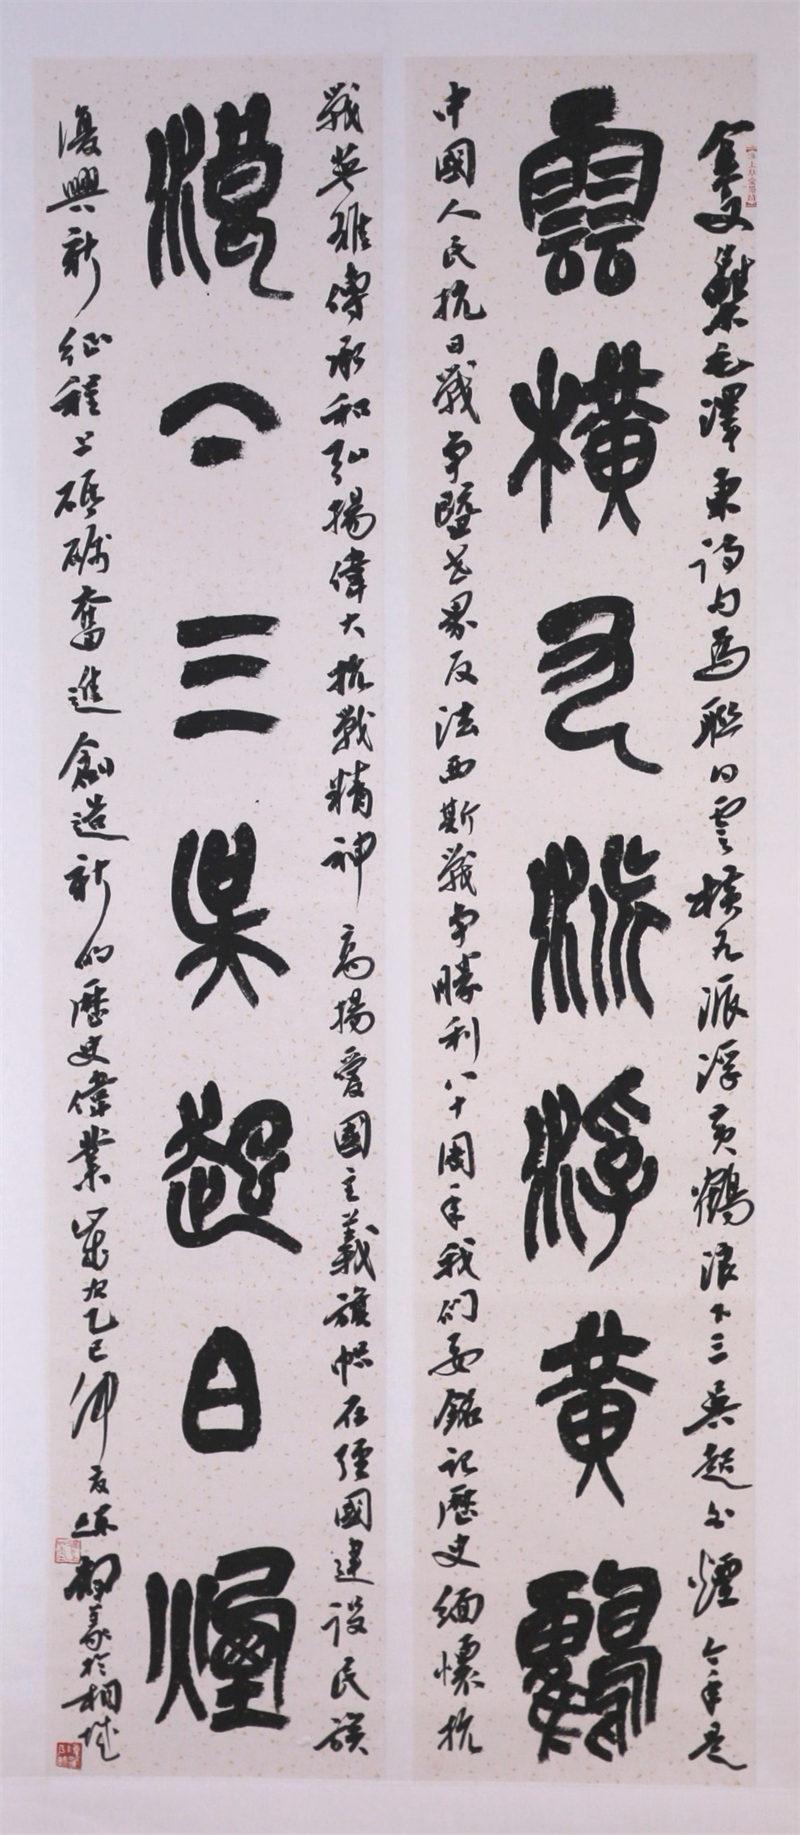 金文集毛澤東詩句為聯曰雲橫九派浮黃鶴浪下三吳起白煙今年是
雲橫九派浮黃鶴
中國人民抗日戰爭暨世界反法西斯戰爭勝利八十周年我們要銘記歷史緬懷抗
戰英雄傳承和弘揚偉大抗戰精神高揚愛國主義旗幟在強國建設民族
浪下三吳起白煙
復興新征程上砥礪奮進創造新的歷史偉業歲在乙巳仲夏於桐城